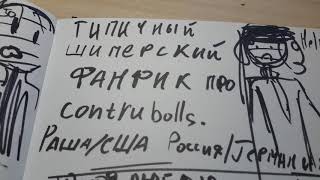 ТИПИЧНЫЙ
ШИПЕРСКИЙ
ФАНФИК ПРО
contrubolls.
Раша/США Россия/Германия